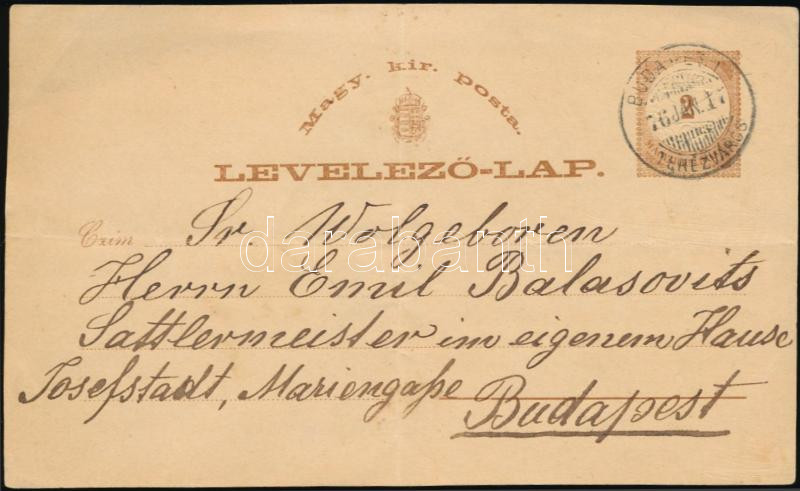 Magy. kir. posta.
BUDAPEST
76 JAN. 17
TERÉZVÁROS
2
LEVELEZŐ-LAP.
Czim
Sr. Wolgeboren
Herrn Emil Balasovits
Sattlermeister im eigenem Hause
Josefstadt, Mariengaße
Budapest
darabanth